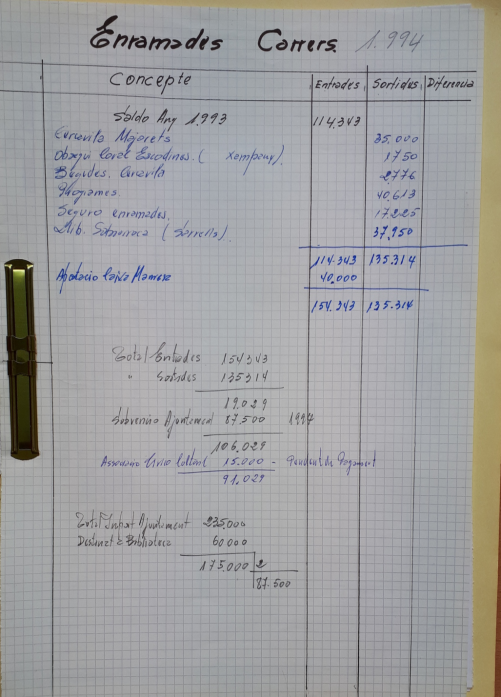 Enramades Carrers. 1.994
Concepte Entrades Sortidas Diferencia
Saldo Any 1.993 114.343
Majorets 35.000
Obsequi Coral Escodines. ( 1750
2776
Programes. 40.613
Seguro enramades. 17.225
37.950
114.343 135.314
Aportacio Caixa Manresa 40.000
154.343 135.314
Total Entrades 154343
" Sortides 135314
19.029
Subvencio Ajuntament 87.500 1994
106.029
15.000 - Pendent de Pagament
91.029
Total Import Ajuntament 235.000
Destinat a Biblioteca 60.000
175.000 2
87.500